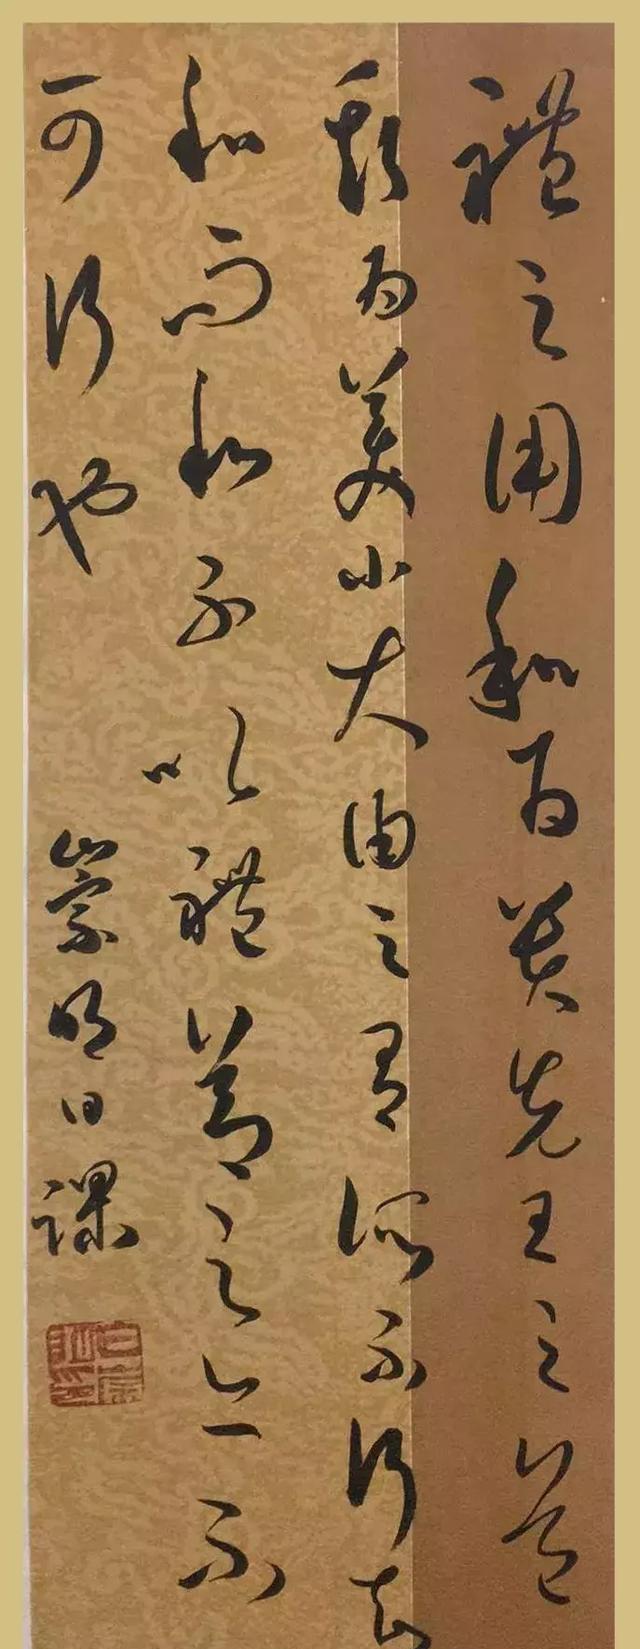 禮之用和為貴先王之道
斯為美小大由之有所不行知
和而和不以禮節之亦不
可行也 崇明日課